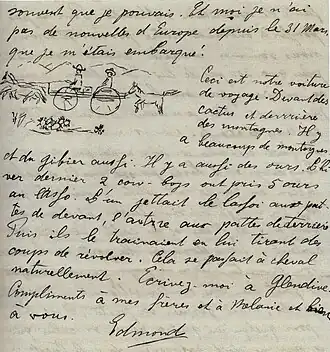 souvent que je pouvais. Et moi je n'ai
pas de nouvelles d'Europe depuis le 31 Mars,
que je m'étais embarqué.
Ceci est notre voiture
de voyage. Devant des
cactus et derrière
des montagnes. Il y
a beaucoup de montagnes
et du gibier aussi. Il y a aussi des ours. L'hi-
ver dernier 2 cow-boys ont pris 5 ours
au lasso. L'un jettait le lasso aux pat-
tes de devant, l'autre aux pattes de derrière
Puis ils le trainaient en lui tirant des
coups de revolver. Cela se faisait à cheval
naturellement. Ecrivez-moi à Glendive.
Compliments à mes frères et à Melanie et bien
à vous.
Edmond